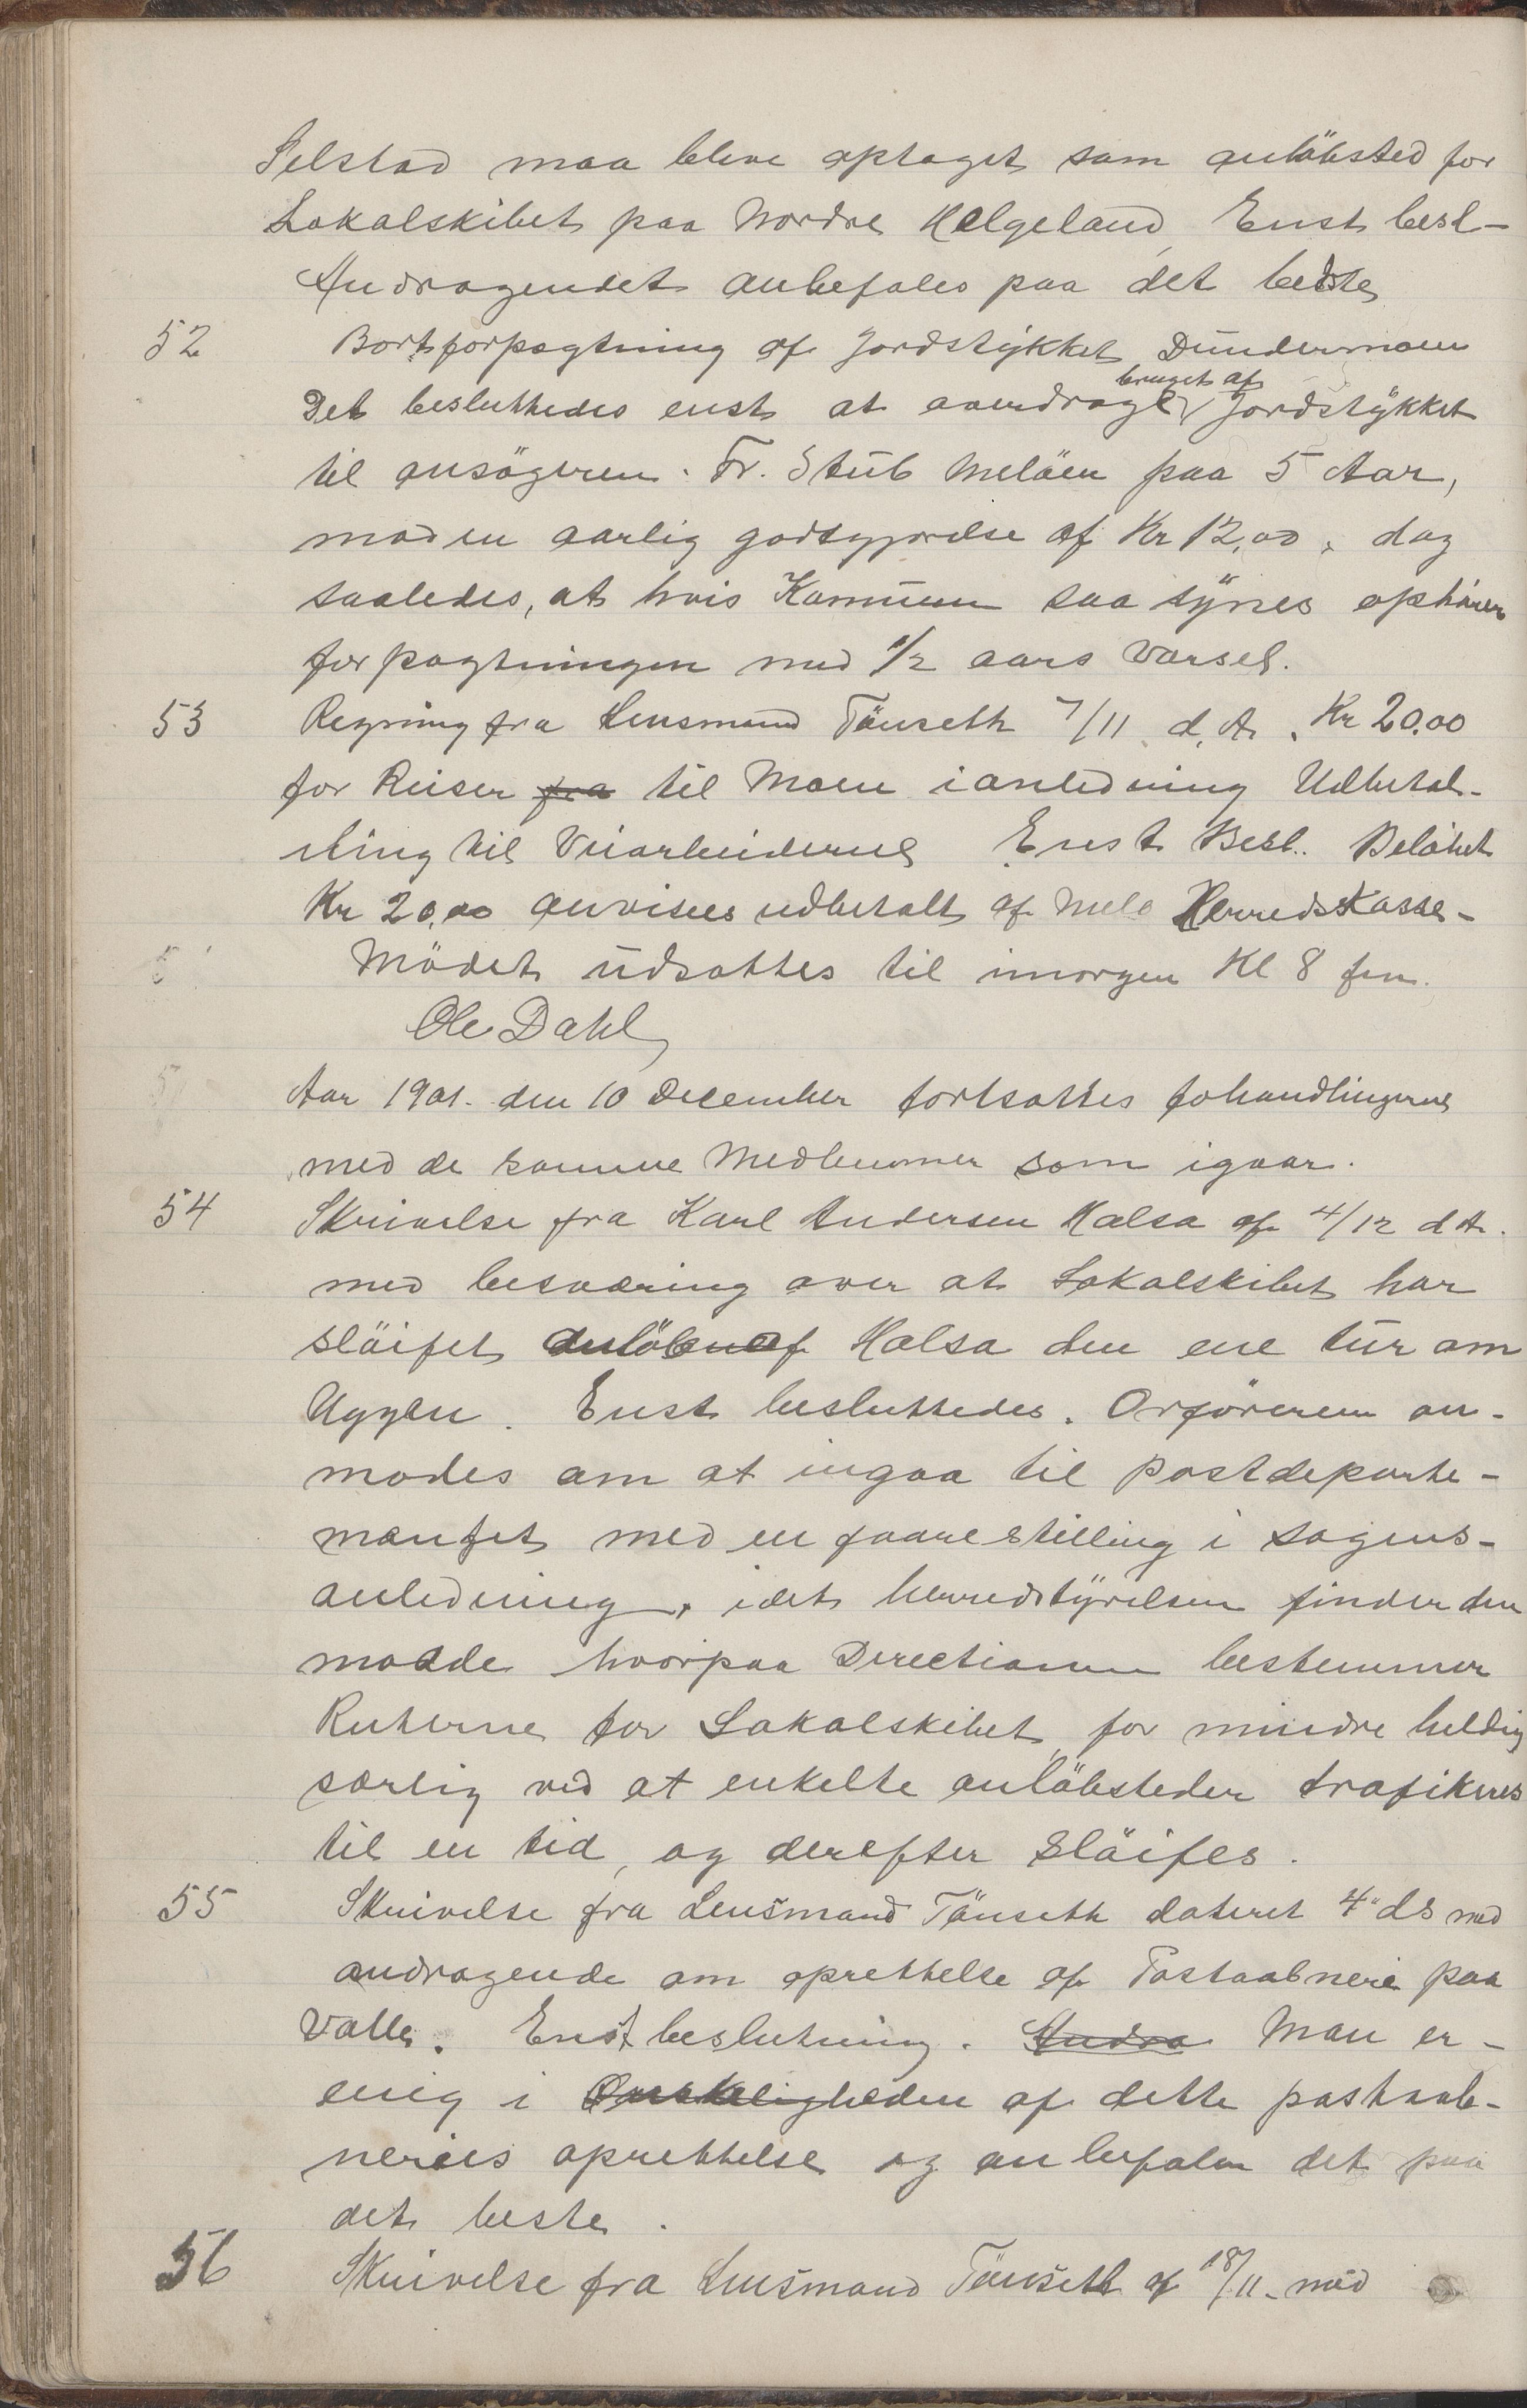 Selstad maa bleve optaget som anlöbsted for
Lokalskibet paa Nordre Helgeland Enst besl-
Andragendet anbefales paa det bedste
52 Bortforpagtning af Jordstykket Dundermoen
bruget af
Det besluttedes enst at overdrage Jordstykket
til ansögeren Fr. Stub Melöen paa 5 Aar,
mod en aarlig godtgjørelse af Kr 12,00, dog
saaledes, at hvis Kommunen saa synes ophörer
forpagtningen med 1/2 aars Varsel.
53 Regning fra Lensmand Tönseth 7/11 d. A. Kr 20.00
for Reiser fra til Moen i anledning Udbetal-
ling til Veiarbeiderne Enst Besl. Belöbet
Kr 20,00 anvises udbetalt af Melö Herredskasse-
Mödet udsattes til imorgen Kl 8 fm.
Ole Dahl
Aar 1901. den 10 December fortsattes fohandlingerne
med de samme Medlemmer som igaar.
54 Skrivelse fra Karl Andersen Halsa af 4/12 d A.
med besværing over at Lokalskibet har
slöifet anlöbene af Halsa den ene tur om
Uggen. Enst besluttedes. Orföreren an-
modes om at ingaa til Postdeparte-
mentet med en faarestilling i sagens-
anledning, idet herredstyrelsen finder den
maade hvorpaa Directionen bestemmer
Ruterne for Lokalskibet for mindre heldig
særlig ved at enkelte anlöbsteder trafikeres
til en tid, og derefter slöifes.
55 Skrivelse fra Lensmand Tönseth dateret 4" ds med
andragende om oprettelse af Postaabneri paa
Valle. Enst beslutning. Andra Man er-
enig i Ønskeligheden af dette postaab-
neries oprettelse og anbefaler det paa
det beste.
56 Skrivelse fra Lensmand Tönseth af 18/11. med